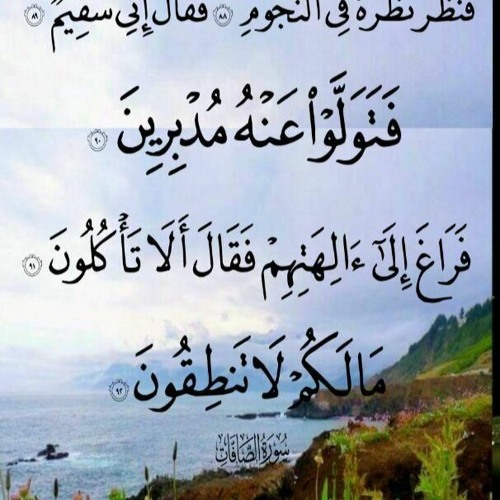 فَنَظَرَ نَظْرَةً فِى ٱلنُّجُومِ ٨٨ فَقَالَ إِنِّى سَقِيمٌ ٨٩
فَتَوَلَّوْا۟ عَنْهُ مُدْبِرِينَ ٩٠
فَرَاغَ إِلَىٰٓ ءَالِهَتِهِمْ فَقَالَ أَلَا تَأْكُلُونَ ٩١
مَا لَكُمْ لَا تَنطِقُونَ ٩٢
سُورَةُ الصَّافَّاتِ